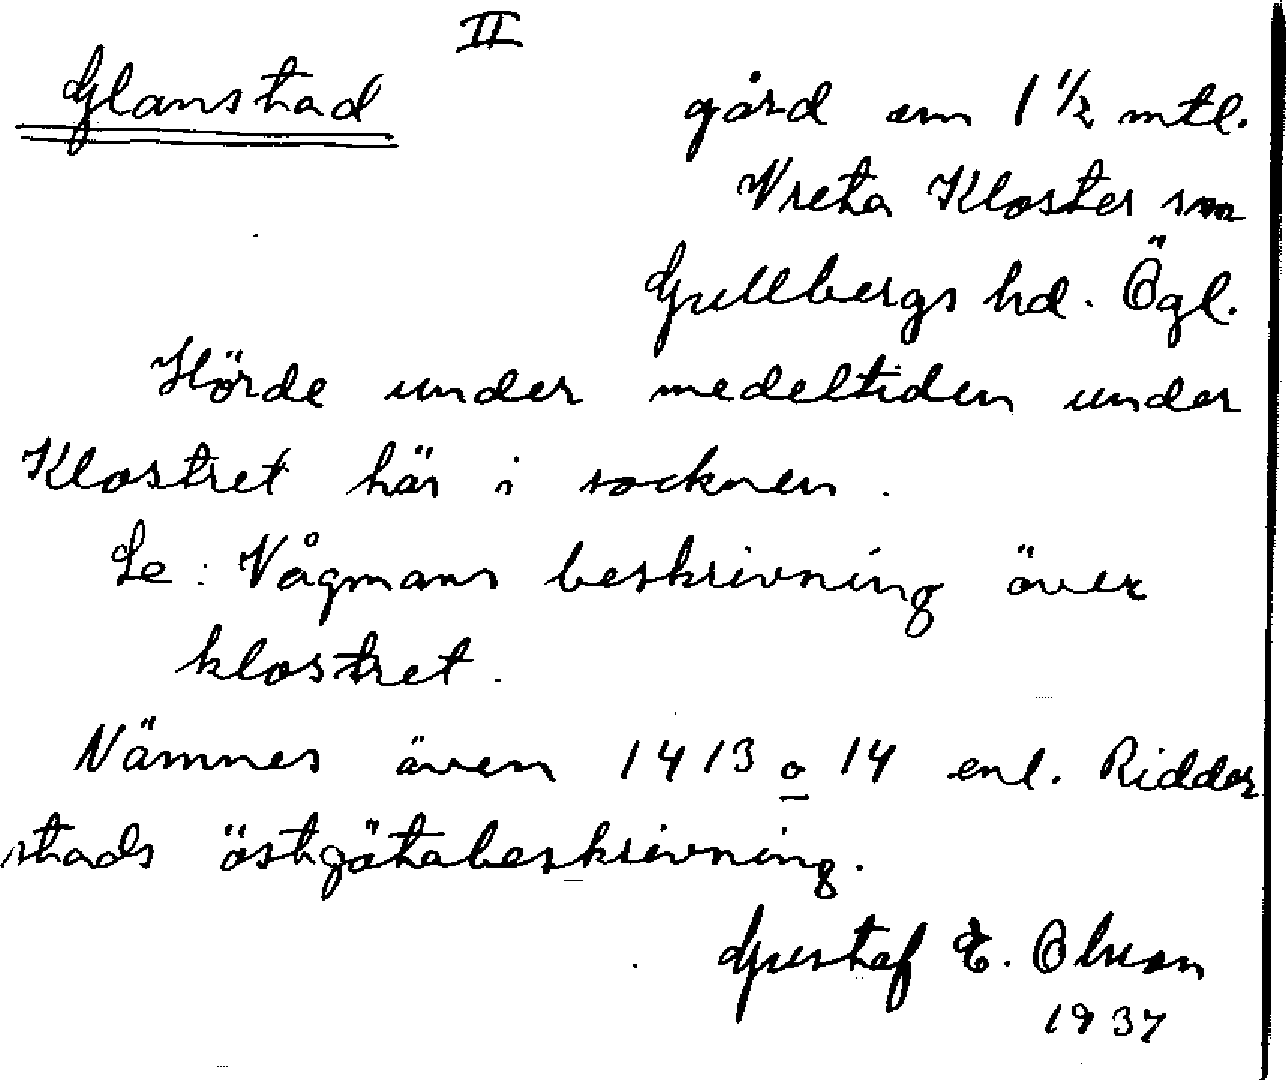 II
Glanstad
gård om 1 1/2 mtl.
Vreta Kloster sn
Gullbergs hd. Ögl.
Hörde under medeltiden under
Klostret här i socknen.
Se: Vågmans beskrivning över
klostret.
Nämnes även 1413 o 14 enl. Ridder
stads östgötabeskrivning.
Gustaf E. Olsson
1937